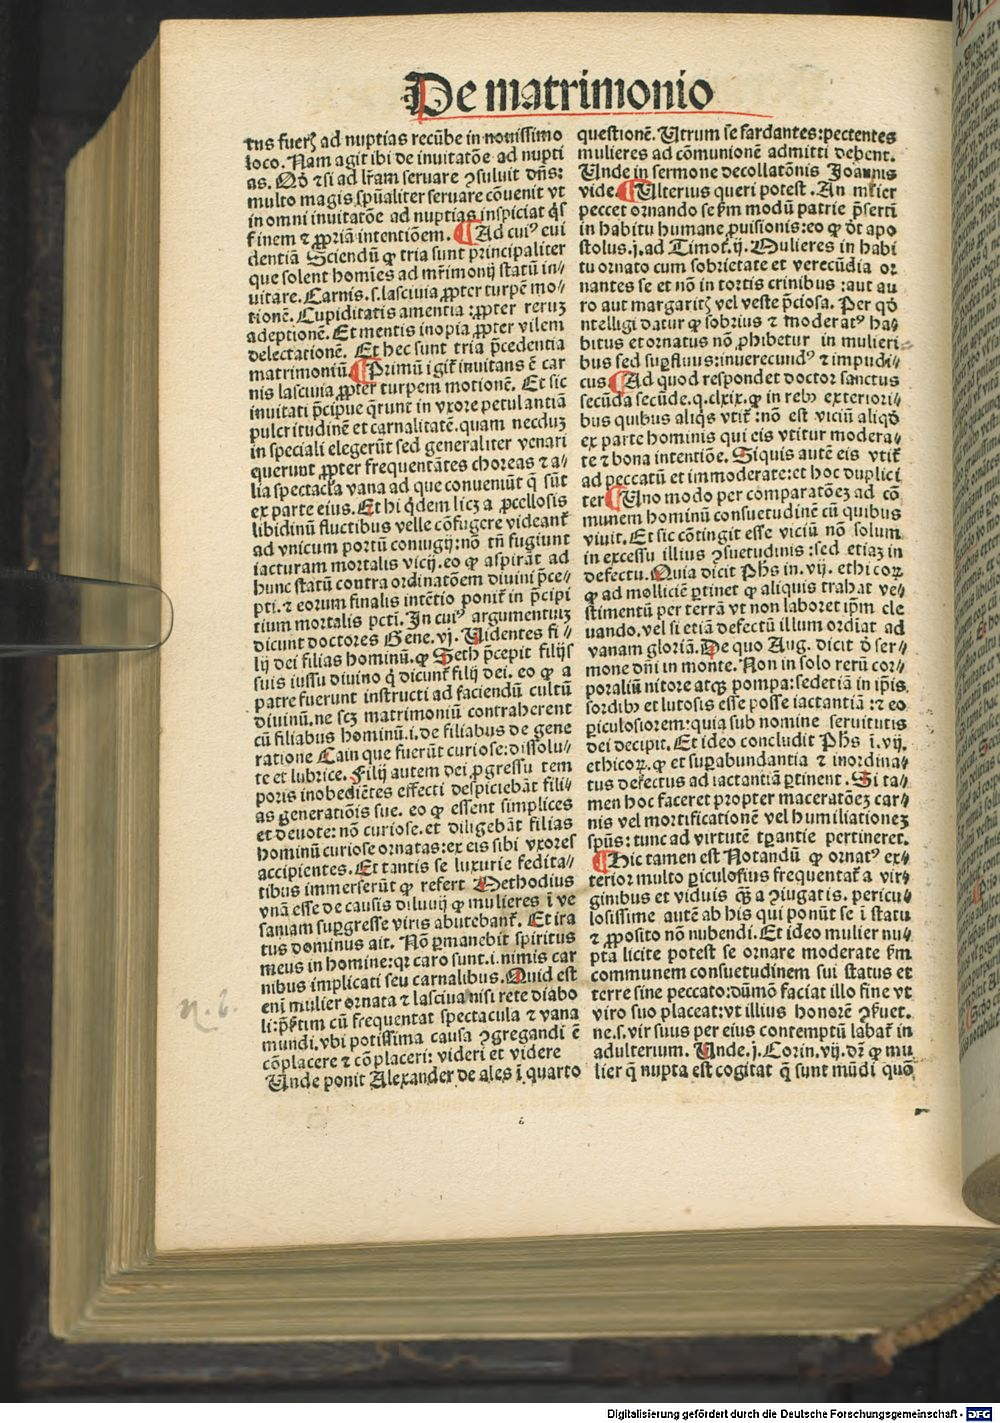 De matrimonio
tus fuerꝭ ad nuptias recūbe in nouissimo
loco. Nam agit ibi de inuitatōe ad nupti
as. Qḋ ⁊ si ad lr̄am seruare ꝯsuluit dn̄s:
multo magis spūaliter seruare cōuenit vt
in omni inuitatōe ad nuptias inspiciat qͥs
finem ⁊ ꝓpriā intentiōem. ¶ Ad cuiꝰ eui
dentiā Sciendū ꝙ tria sunt principaliter
que solent homīes ad mr̄imonij statū in⸗
uitare. Carnis .s. lasciuia ꝓpter turpē mo⸗
tionē. Cupiditatis amentia : ꝓpter reruꝫ
adeptionē. Et mentis inopia ꝓpter vilem
delectationē. Et hec sunt tria p̄cedentia
matrimoniū. ¶ Primū igit᷑ inuitans ē car
nis lasciuia ꝓpter turpem motionē. Et sic
inuitati p̄cipue q̄runt in vxore petulantiā
pulcritudinē et carnalitatē. quam necduꝫ
in speciali elegerūt sed generaliter venari
querunt ꝓpter frequentātes choreas ⁊ a⸗
lia spectacl̄a vana ad que conueniūt q̄ sūt
ex parte eius. Et hi qͥdem licꝫ a ꝓcellosis
libidinū fluctibus velle cōfugere videant᷑
ad vnicum portū coniugij: nō tn̄ fugiunt
iacturam mortalis vicij. eo ꝙ aspirāt ad
hunc statū contra ordinatōem diuini p̄ce⸗
pti. ⁊ eorum finalis intētio ponit᷑ in p̄cipi
tium mortalis pctī. In cuiꝰ argumentuꝫ
dicunt doctores Gene. vj. Uidentes fi⸗
lij dei filias hominū. ꝙ Seth p̄cepit filijs
suis iussu diuino q̄ dicunt᷑ filij dei. eo ꝙ a
patre fuerunt instructi ad faciendū cultū
diuinū. ne scꝫ matrimoniū contraherent
cū filiabus hominū .i. de filiabus de gene
ratione Cain que fuerūt curiose: dissolu⸗
te et lubrice. Filij autem dei ꝓgressu tem
poris inobediētes effecti despiciebāt fili⸗
as generatiōis sue. eo ꝙ essent simplices
et deuote: nō curiose. et diligebāt filias
hominū curiose ornatas: ex eis sibi vxores
accipientes. Et tantis se luxurie fedita⸗
tibus immerserūt ꝙ refert Methodius
vnā esse de causis diluuij ꝙ mulieres ī ve
saniam suꝑgresse viris abutebant᷑. Et ira
tus dominus ait. Nō ꝑmanebit spiritus
meus in homine: qꝛ caro sunt .i. nimis car
nibus implicati seu carnalibus. Quid est
enī mulier ornata ⁊ lasciua nisi rete diabo
li: p̄s̄tim cū frequentat spectacula ⁊ vana
mundi. vbi potissima causa ꝯgregandi ē
cōplacere ⁊ cōplaceri: videri et videre
Unde ponit Alexander de ales ī quarto
questionē. Utrum se fardantes: pectentes
mulieres ad cōmunionē admitti debent.
Unde in sermone decollatōnis Joannis
vide. ¶ Ulterius queri potest. An ml̄ier
peccet ornando se s̄m modū patrie p̄sertī
in habitu humane ꝓuisionis: eo ꝙ dꝫ apo
stolus .j. ad Timot̄. ij. Mulieres in habi
tu ornato cum sobrietate et verecūdia or
nantes se et nō in tortis crinibus : aut au
ro aut margaritꝭ vel veste p̄ciosa. Per qḋ
ntelligi datur ꝙ sobrius ⁊ moderatꝰ ha⸗
bitus et ornatus nō ꝓhibetur in mulieri⸗
bus sed suꝑfluus: inuerecundꝰ ⁊ impudi⸗
cus ¶ Ad quod respondet doctor sanctus
secūda secūde. q. clxix. ꝙ in rebꝰ exteriori⸗
bus quibus aliqͥs vtit᷑: nō est viciū aliqḋ
ex parte hominis qui eis vtitur modera⸗
te ⁊ bona intentiōe. Siquis autē eis vtit᷑
ad peccatū et immoderate: et hoc duplici
ter ¶ Uno modo per comparatōeꝫ ad cō
munem hominū consuetudinē cū quibus
viuit. Et sic cōtingit esse viciū nō solum
in excessu illius ꝯsuetudinis : sed etiaꝫ in
defectu. Quia dicit Ph̄s in .vij. ethicoꝝ
ꝙ ad molliciē ꝑtinet ꝙ aliquis trahat ve⸗
stimentū per terrā vt non laboret ip̄m ele
uando. vel si etiā defectū illum ordīat ad
vanam gloriā. De quo Aug. dicit ḋ ser⸗
mone dn̄i in monte. Non in solo rerū cor⸗
poraliū nitore atqꝫ pompa: sed etiā in ip̄is
sordibꝰ et lutosis esse posse iactantiā : ⁊ eo
ꝑiculosiorem: quia sub nomine seruitutis
dei decipit. Et ideo concludit Ph̄s ī .vij.
ethicoꝝ. ꝙ et suꝑabundantia ⁊ inordina⸗
tus defectus ad iactantiā ꝑtinent. Si ta⸗
men hoc faceret propter maceratōeꝫ car⸗
nis vel mortificationē vel humiliationeꝫ
spūs: tunc ad virtutē tꝑantie pertineret.
¶ Hic tamen est Notandū ꝙ ornatꝰ ex⸗
terior multo ꝑiculosius frequentat᷑ a vir⸗
ginibus et viduis qꝫ a ꝯiugatis. pericu⸗
losissime autē ab his qui ponūt se ī statu
⁊ ꝓposito nō nubendi. Et ideo mulier nu⸗
pta licite potest se ornare moderate s̄m
communem consuetudinem sui status et
terre sine peccato: dūmō faciat illo fine vt
viro suo placeat: vt illius honorē ꝯseruet.
ne .s. vir suus per eius contemptū labat᷑ in
adulterium. Unde .j. Corin. vij. dr̄ ꝙ mu
lier q̄ nupta est cogitat q̄ sunt mūdi quō
n. b.
Digitalisierung gefördert durch die Deutsche Forschungsgemeinschaft - DFG